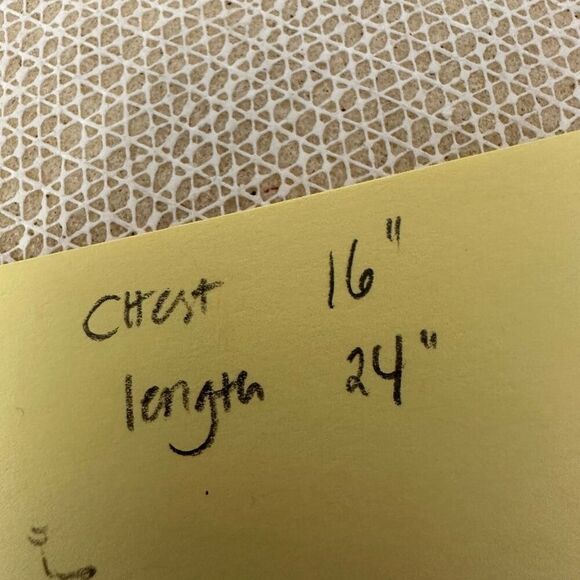 Chest 16"
length 24"